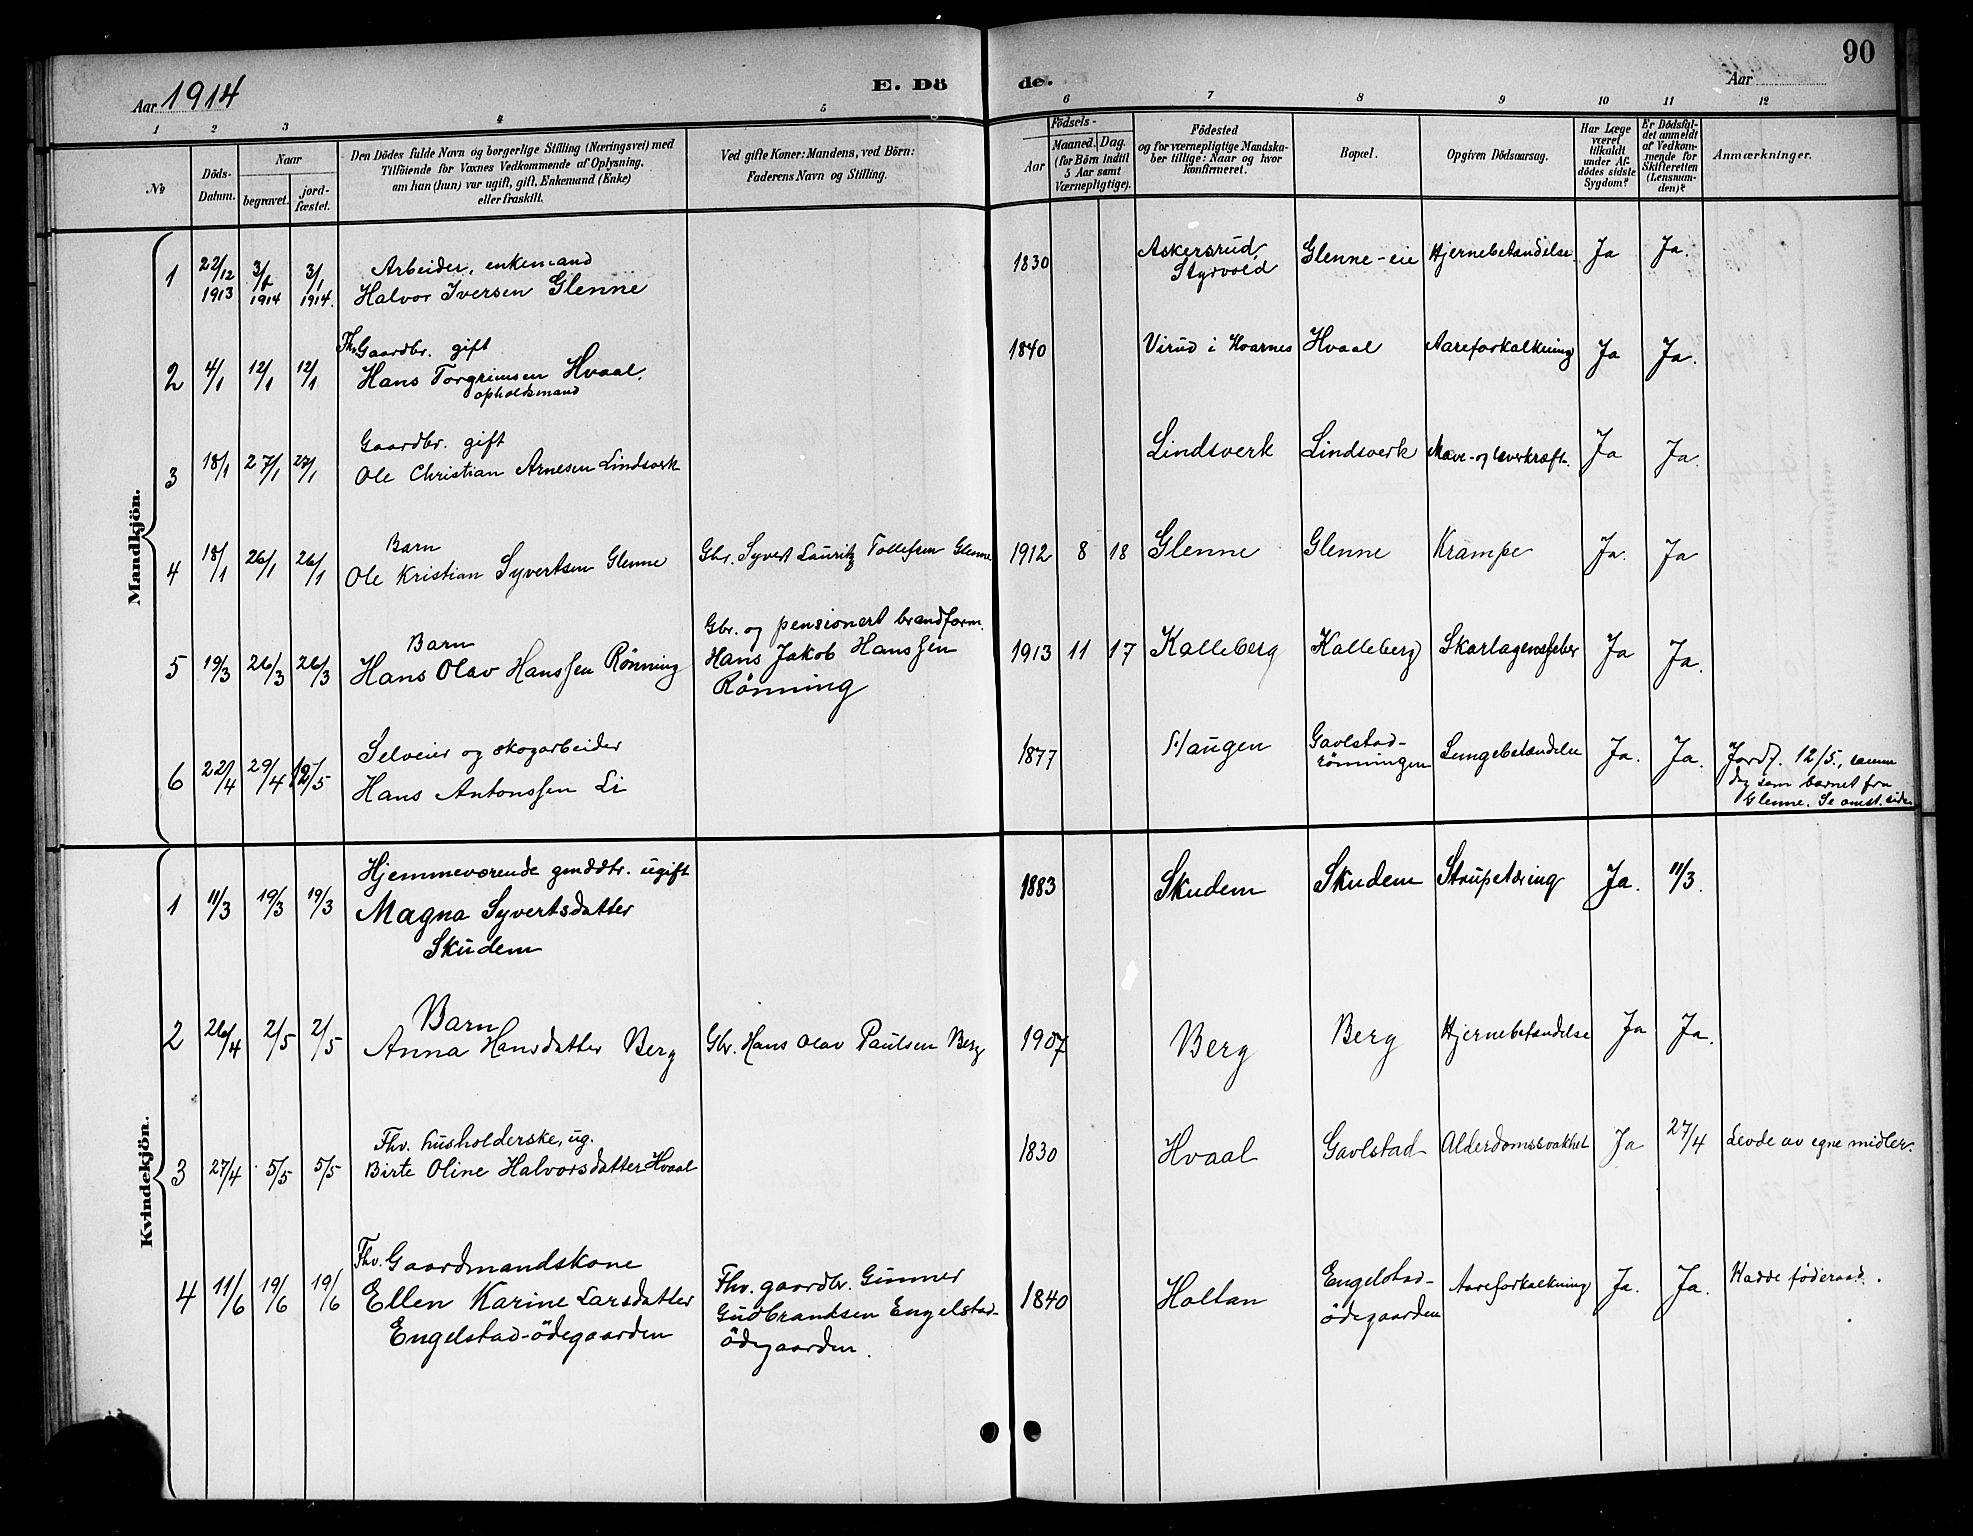 Aar 1914
E. Dö
de.
Aar
90
1 2 3 4 5 6 7 8 9 10 11 12
No
Döds-Datum.
Naar
begravet.
jord-fæstet.
Den Dödes fulde Navn og borgerlige Stilling (Næringsvei) med
Tilföiende for Voxnes Vedkommende af Oplysning,
om han (hun) var ugift, gift, Enkemand (Enke)
eller fraskilt.
Ved gifte Koner: Mandens, ved Börn:
Faderens Navn og Stilling.
Födsels-
Aar
Maaned. Dag.
(for Börn indtil
5 Aar samt
Værnepligtige).
Födested
og for værnepligtige Mandska-
ber tillige: Naar og hvor
konfirmeret.
Bopæl.
Opgiven Dödsaarsag.
Har Læge
været
tilkaldt
under Af-
dödes sidste
Sygdom?
Er Dödsfal-
det anmeldt
af Vedkom-
mende for
Skifteretten
(Lensman-
den)?
Anmærkninger.
Mandkjön.
1 22/12 1913 3/1 1914 3/1 1914. Arbeider, enkemand
Halvor Iversen Glenne
1830 Askersrud, Styrvold Glenne-eie Hjernebetændelse Ja Ja.
2 4/1 12/1 12/1 Fhv. Gaardbr. gift
Hans Torgrimsen Hvaal,
opholdsmand
1840 Virud i Hvarnes Hvaal Aareforkalkning Ja Ja.
3 18/1 27/1 27/1 Gaardbr. gift
Ole Christian Arnesen Lindsverk
Lindsverk Lindsverk Mave- og leverkræft. Ja Ja.
4 18/1 26/1 26/1 Barn
Ole Kristian Syvertsen Glenne
Gbr. Syvert Lauritz Tollefsen Glenne
1912 8 18 Glenne Glenne Krampe Ja. Ja
5 19/3 26/3 26/3 Barn
Hans Olav Hanssen Rönning
Gbr. og pensionert brandform.
Hans Jakob Hanssen
Rönning
1913 11 17 Kalleberg Kalleberg Skarlagensfeber Ja Ja.
6 22/4 29/4 12/5 Selveier og skogarbeider
Hans Antonssen Li
1877 Haugen Gavlstad-
rönningen Lungebetændelse Ja. Ja. Jordf. 12/5, samme
dag som barnet fra
Glenne. Se omst. side
Kvindekjön.
1 11/3 19/3 19/3 Hjemmeværende gmddtr. ugift
Magna Syvertsdatter
Skudem
1883 Skudem Skudem Strupetæring Ja. 11/3.
2 26/4 2/5 2/5 Barn
Anna Hansdatter Berg
Gbr. Hans Olav Paulsen Berg
1907 Berg Berg Hjernebetændelse Ja Ja.
3 27/4 5/5 5/5 Fhv. husholderske, ug.
Birte Oline Halvorsdatter Hvaal
1830 Hvaal Gavlstad Alderdomssvakhet Ja 27/4 Levde av egne midler.
4 11/6 19/6 19/6 Fhv. Gaardmandskone
Ellen Karine Larsdatter
Engelstad-ödegaarden
Fhv. gaardbr. Gunner
Gudbrandsen Engelstad-
ödegaarden.
1840 Holtan Engelstad-
ödegaarden Aareforkalkning Ja. Ja. Hadde föderaad.